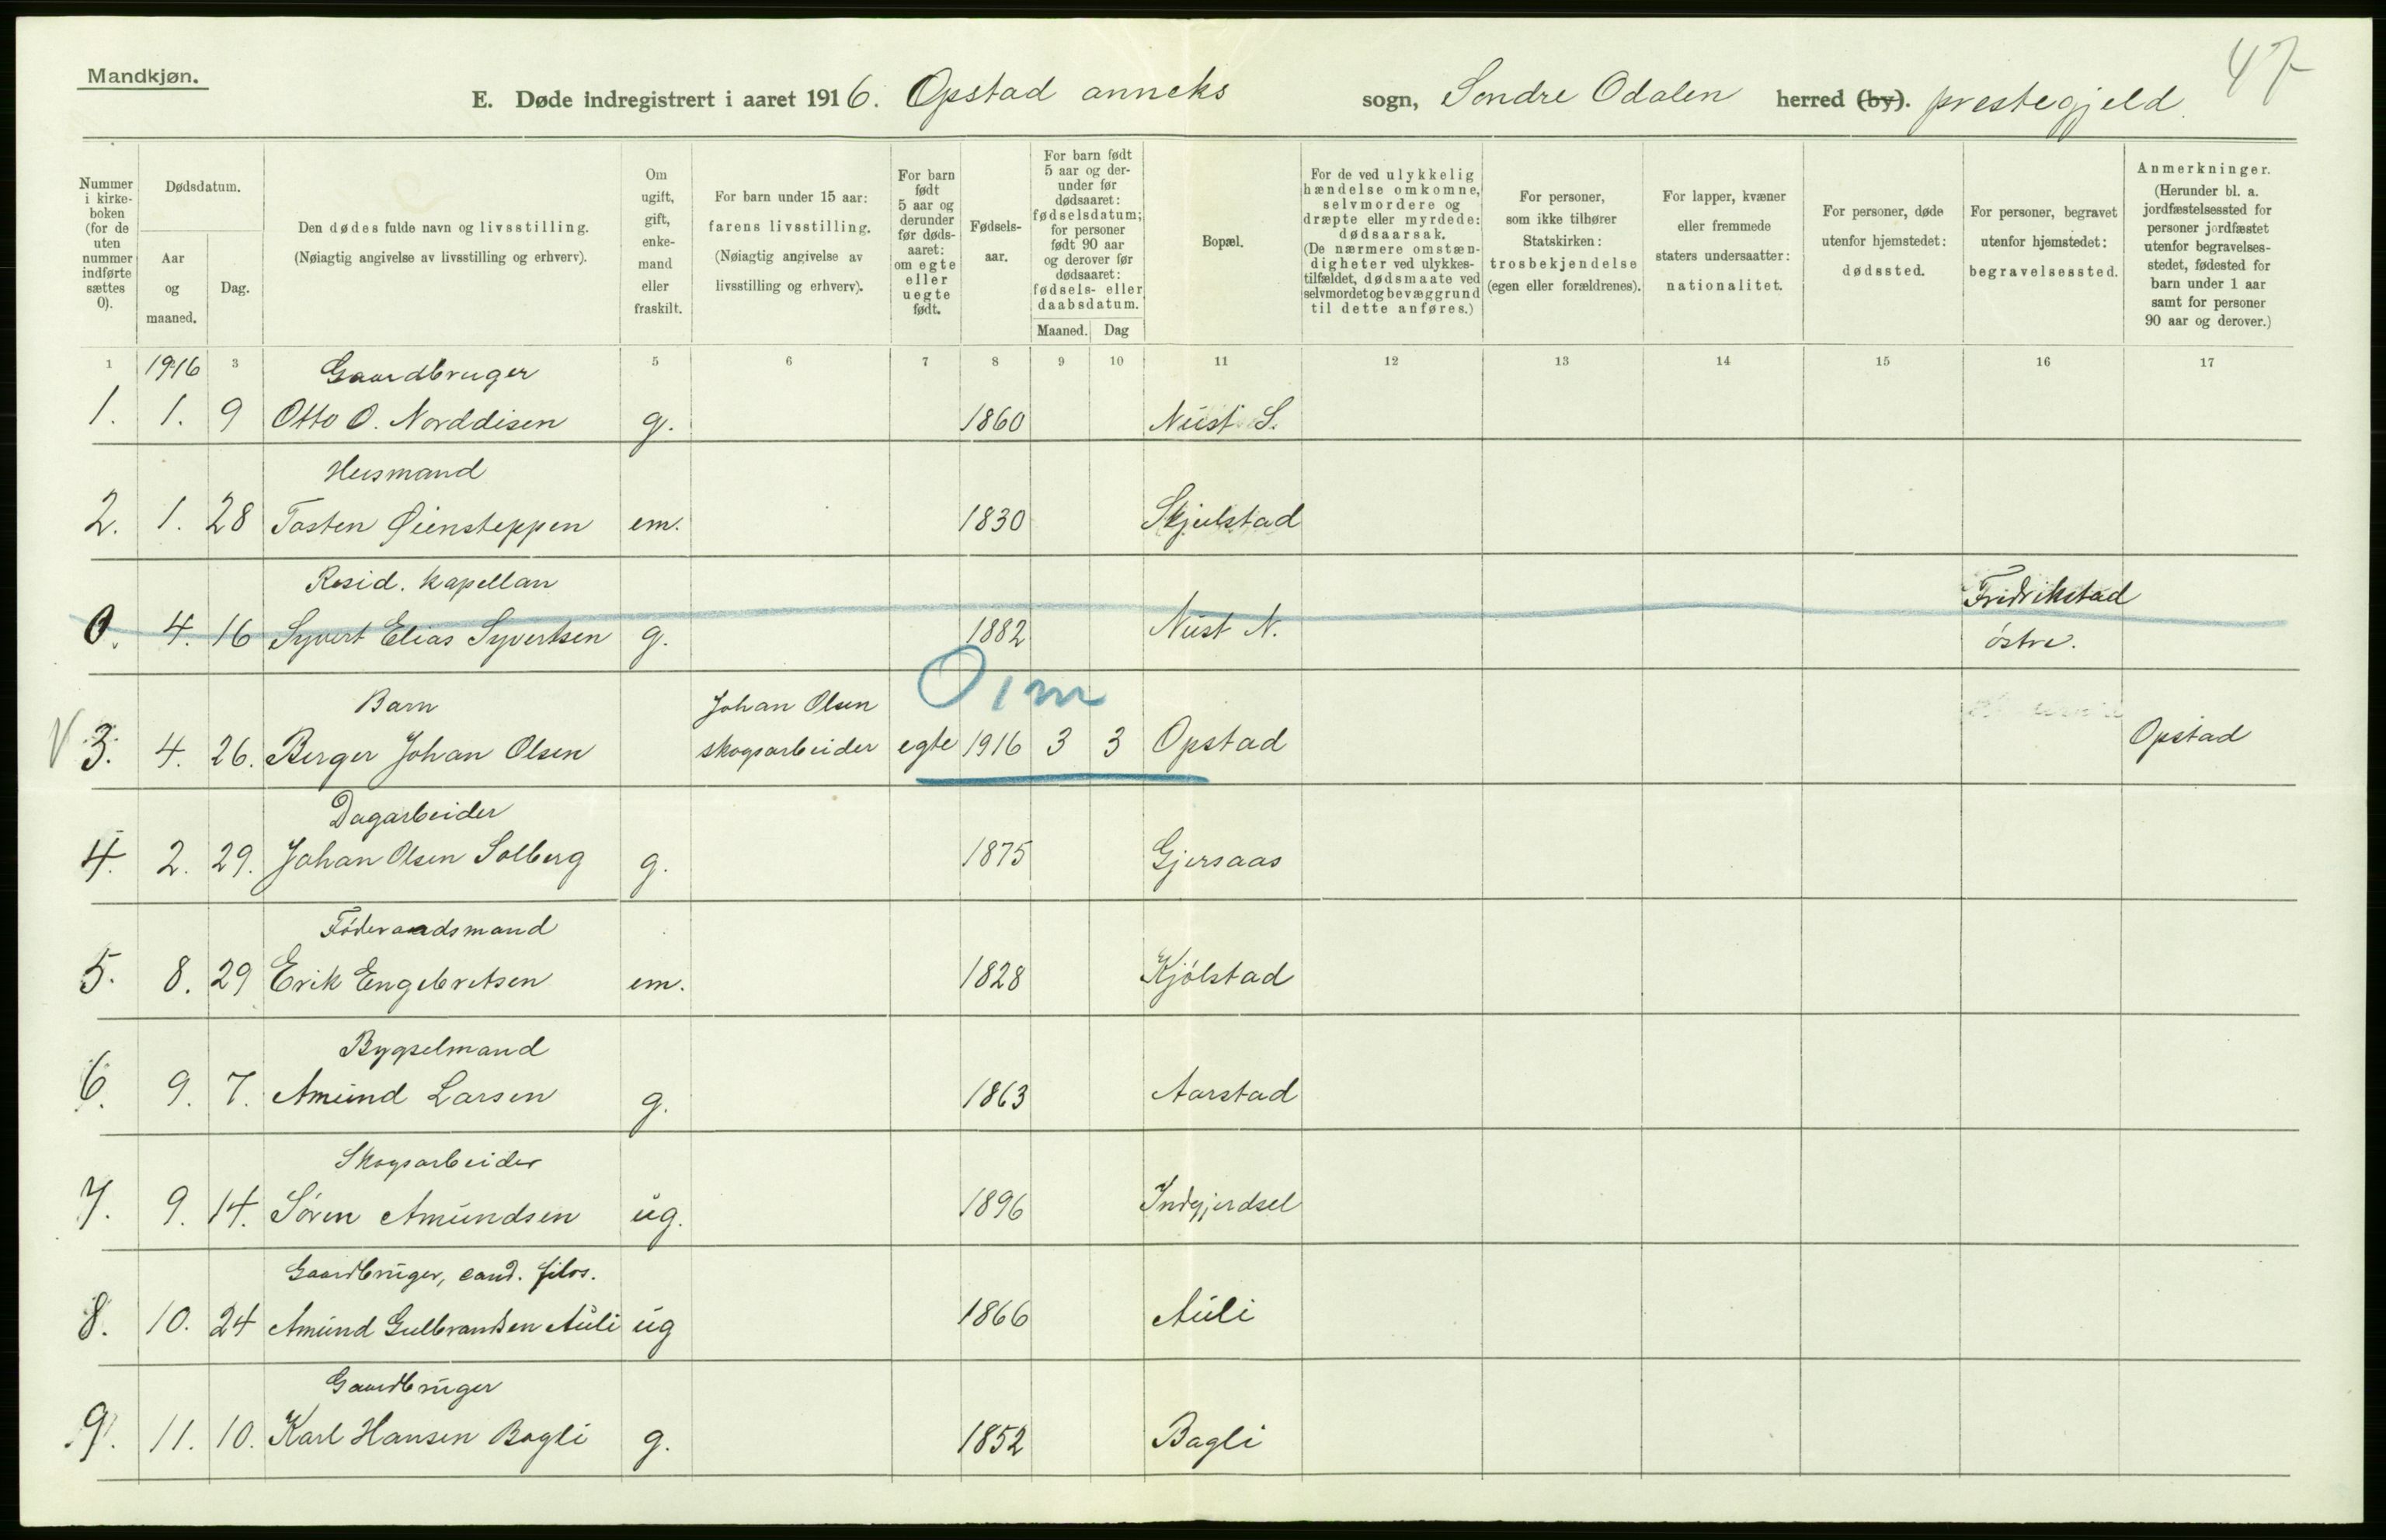 Mandkjøn.
47
E. Døde indregistrert i aaret 1916. Opstad anneks sogn, Søndre Odalen herred (by). prestegjeld.
Nummer i kirke-boken (for de uten nummer indførte sættes 0).
Dødsdatum.
Aar og maaned.
Dag.
Den dødes fulde navn og livsstilling.
(Nøiagtig angivelse av livsstilling og erhverv).
Om ugift, gift, enke-mand eller fraskilt.
For barn under 15 aar: farens livsstilling.
(Nøiagtig angivelse av livsstilling og erhverv).
For barn født 5 aar og derunder før døds-aaret: om egte eller uegte født.
Fødsels-aar.
For barn født 5 aar og der-under før dødsaaret: fødselsdatum; for personer født 90 aar og derover før dødsaaret: fødsels- eller daabsdatum.
Maaned.
Dag
Bopæl.
For de ved ulykkelig hændelse omkomne, selvmordere og dræpte eller myrdede: dødsaarsak.
(De nærmere omstæn-digheter ved ulykkes-tilfældet, dødsmaate ved selvmordet og bevæggrund til dette anføres.)
For personer, som ikke tilhører Statskirken: trosbekjendelse (egen eller forældrenes).
For lapper, kvæner eller fremmede staters undersaatter: nationalitet.
For personer, døde utenfor hjemstedet: dødssted.
For personer, begravet utenfor hjemstedet: begravelsessted.
Anmerkninger.
(Herunder bl. a. jordfæstelsessted for personer jordfæstet utenfor begravelses-stedet, fødested for barn under 1 aar samt for personer 90 aar og derover.)
1 1916 3 5 6 7 8 9 10 11 12 13 14 15 16 17
Gaardbruger
1. 1. 9 Otto O. Norddisen g. 1860 Nust S.
Husmand
2. 1. 28 Tosten Øiensteppen em. 1830 Skjulstad
Resid. kapellan Fridrikstad
0. 4. 16 Syvert Elias Syvertsen g. 1882 Nust N. østre.
Barn Johan Olsen
3. 4. 26. Berger Johan Olsen skogsarbeider egte 1916 3 3 Opstad Opstad
Dagarbeider
4. 2. 29. Johan Olsen Solberg g. 1875 Gjersaas
Føderaadsmand
5. 8. 29 Erik Engebretsen em. 1828 Kjølstad
Bygselmand
6. 9. 7. Amund Larsen g. 1863 Aarstad
Skogsarbeider
7. 9. 14. Søren Amundsen ug. 1896 Indgjerdsel
Gaardbruger, cand. filos.
8. 10. 24 Amund Gulbrandsen Auli ug 1866 Auli
Gaardbruger
9. 11. 10. Karl Hansen Bagli g. 1852 Bagli